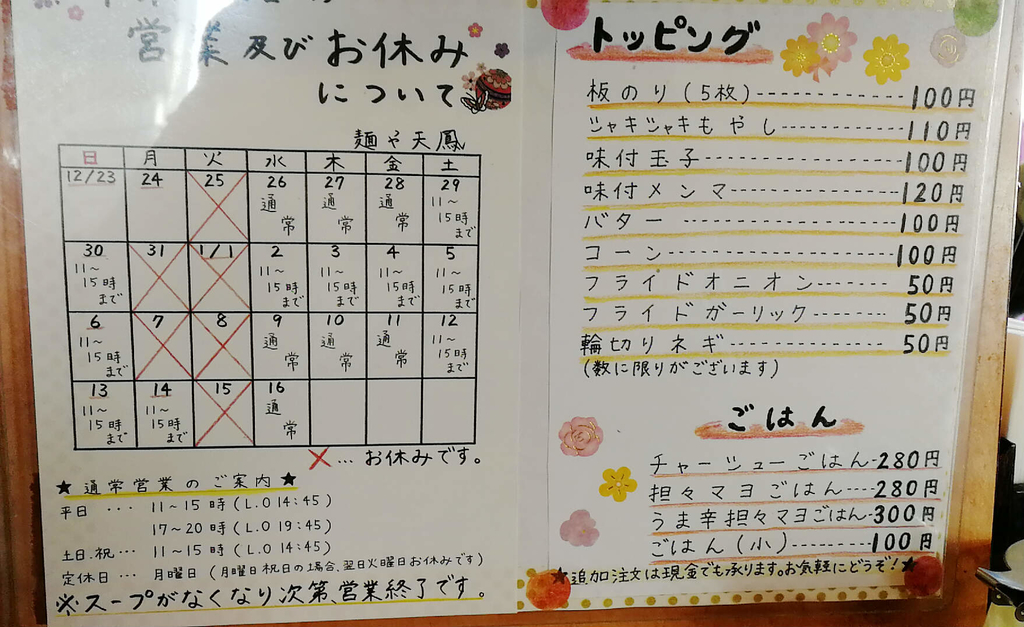 営業及びお休み
について
麺や天鳳
日 月 火 水 木 金 土
12/23 24 25 26 27 28 29
通常 通常 通常 11～15時まで
30 31 1/1 2 3 4 5
11～15時まで 11～15時まで 11～15時まで 11～15時まで 11～15時まで
6 7 8 9 10 11 12
11～15時まで 通常 通常 通常 11～15時まで
13 14 15 16
11～15時まで 11～15時まで 通常
×… お休みです。
★ 通常営業のご案内 ★
平日 ・・・ 11～15時(L.O 14:45)
17～20時(L.O 19:45)
土日.祝… 11～15時(L.O 14:45)
定休日… 月曜日(月曜日祝日の場合、翌日火曜日お休みです)
※スープがなくなり次第、営業終了です。
トッピング
板のり(5枚)------------100円
シャキシャキもやし------------110円
味付玉子------------100円
味付メンマ------------120円
バター------------100円
コーン------------100円
フライドオニオン-------50円
フライドガーリック-------50円
輪切りネギ------------50円
(数に限りがございます)
ごはん
チャーシューごはん-280円
担々マヨごはん----280円
うま辛担々マヨごはん--300円
ごはん(小)------100円
★追加注文は現金でも承ります。お気軽にどうぞ!★